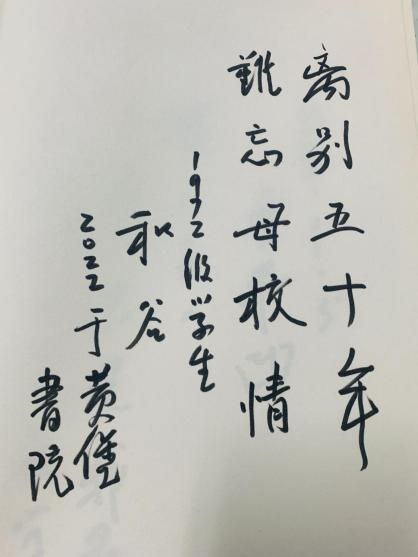 离别五十年
難忘母校情
1972级学生
和谷
2022于黄堡
書院